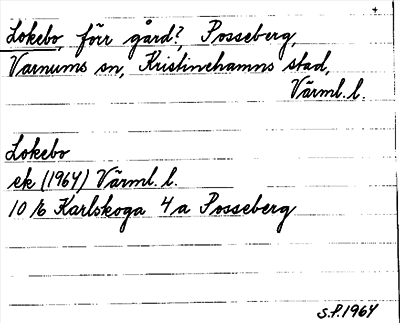 +
Lokebo, förr gård?, Posseberg,
Varnums sn, Kristinehamns stad,
Värml. l.
Lokebo
ek (1964) Värml. l.
10 16 Karlskoga 4 a Posseberg
S.P. 1964